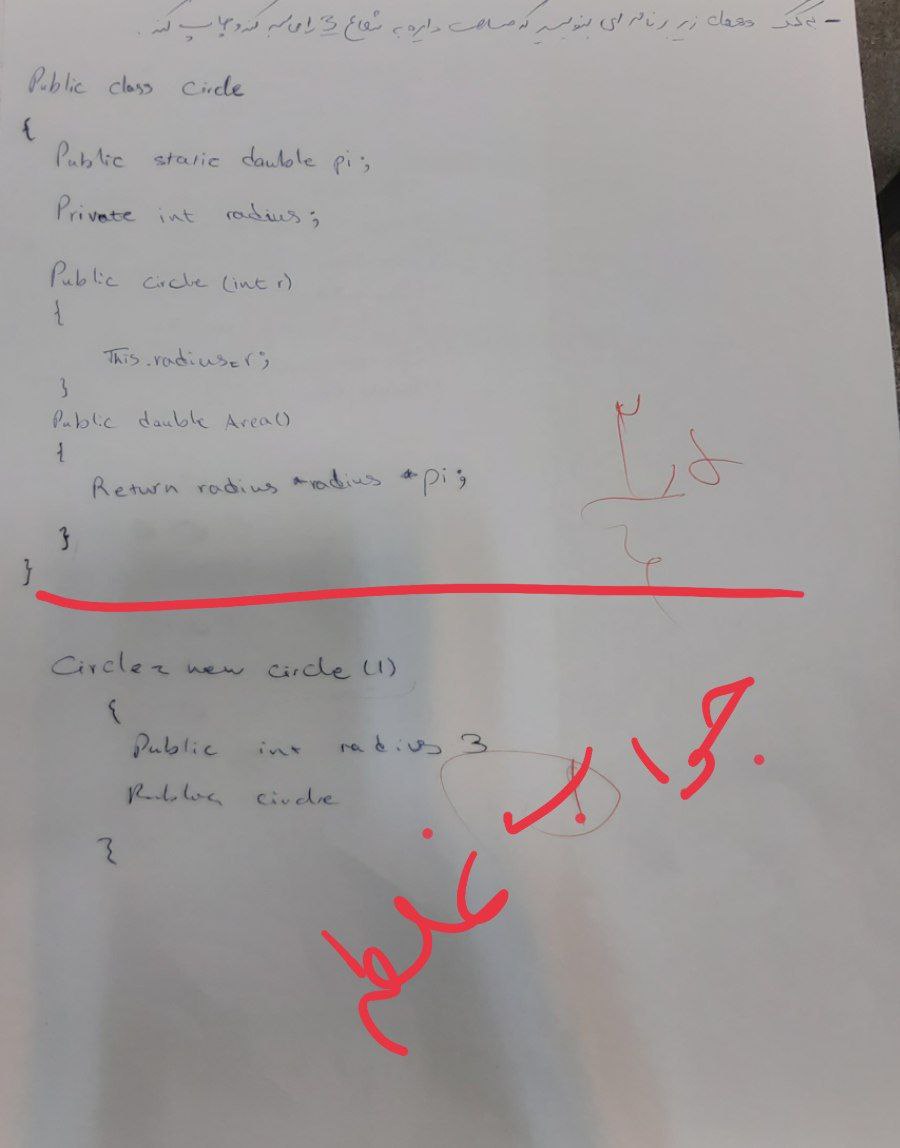 - به کمک class زیر برنامه ای بنویسید که مساحت دایره به شعاع 3 را محاسبه کند و چاپ کند.
Public class Circle
{
Public static double pi;
Private int radius;
Public circle (int r)
{
This.radius=r;
}
Public double Area()
{
Return radius *radius *pi;
}
}
Circle= new circle (1)
{
Public int radius 3
circle
}
جواب غلط